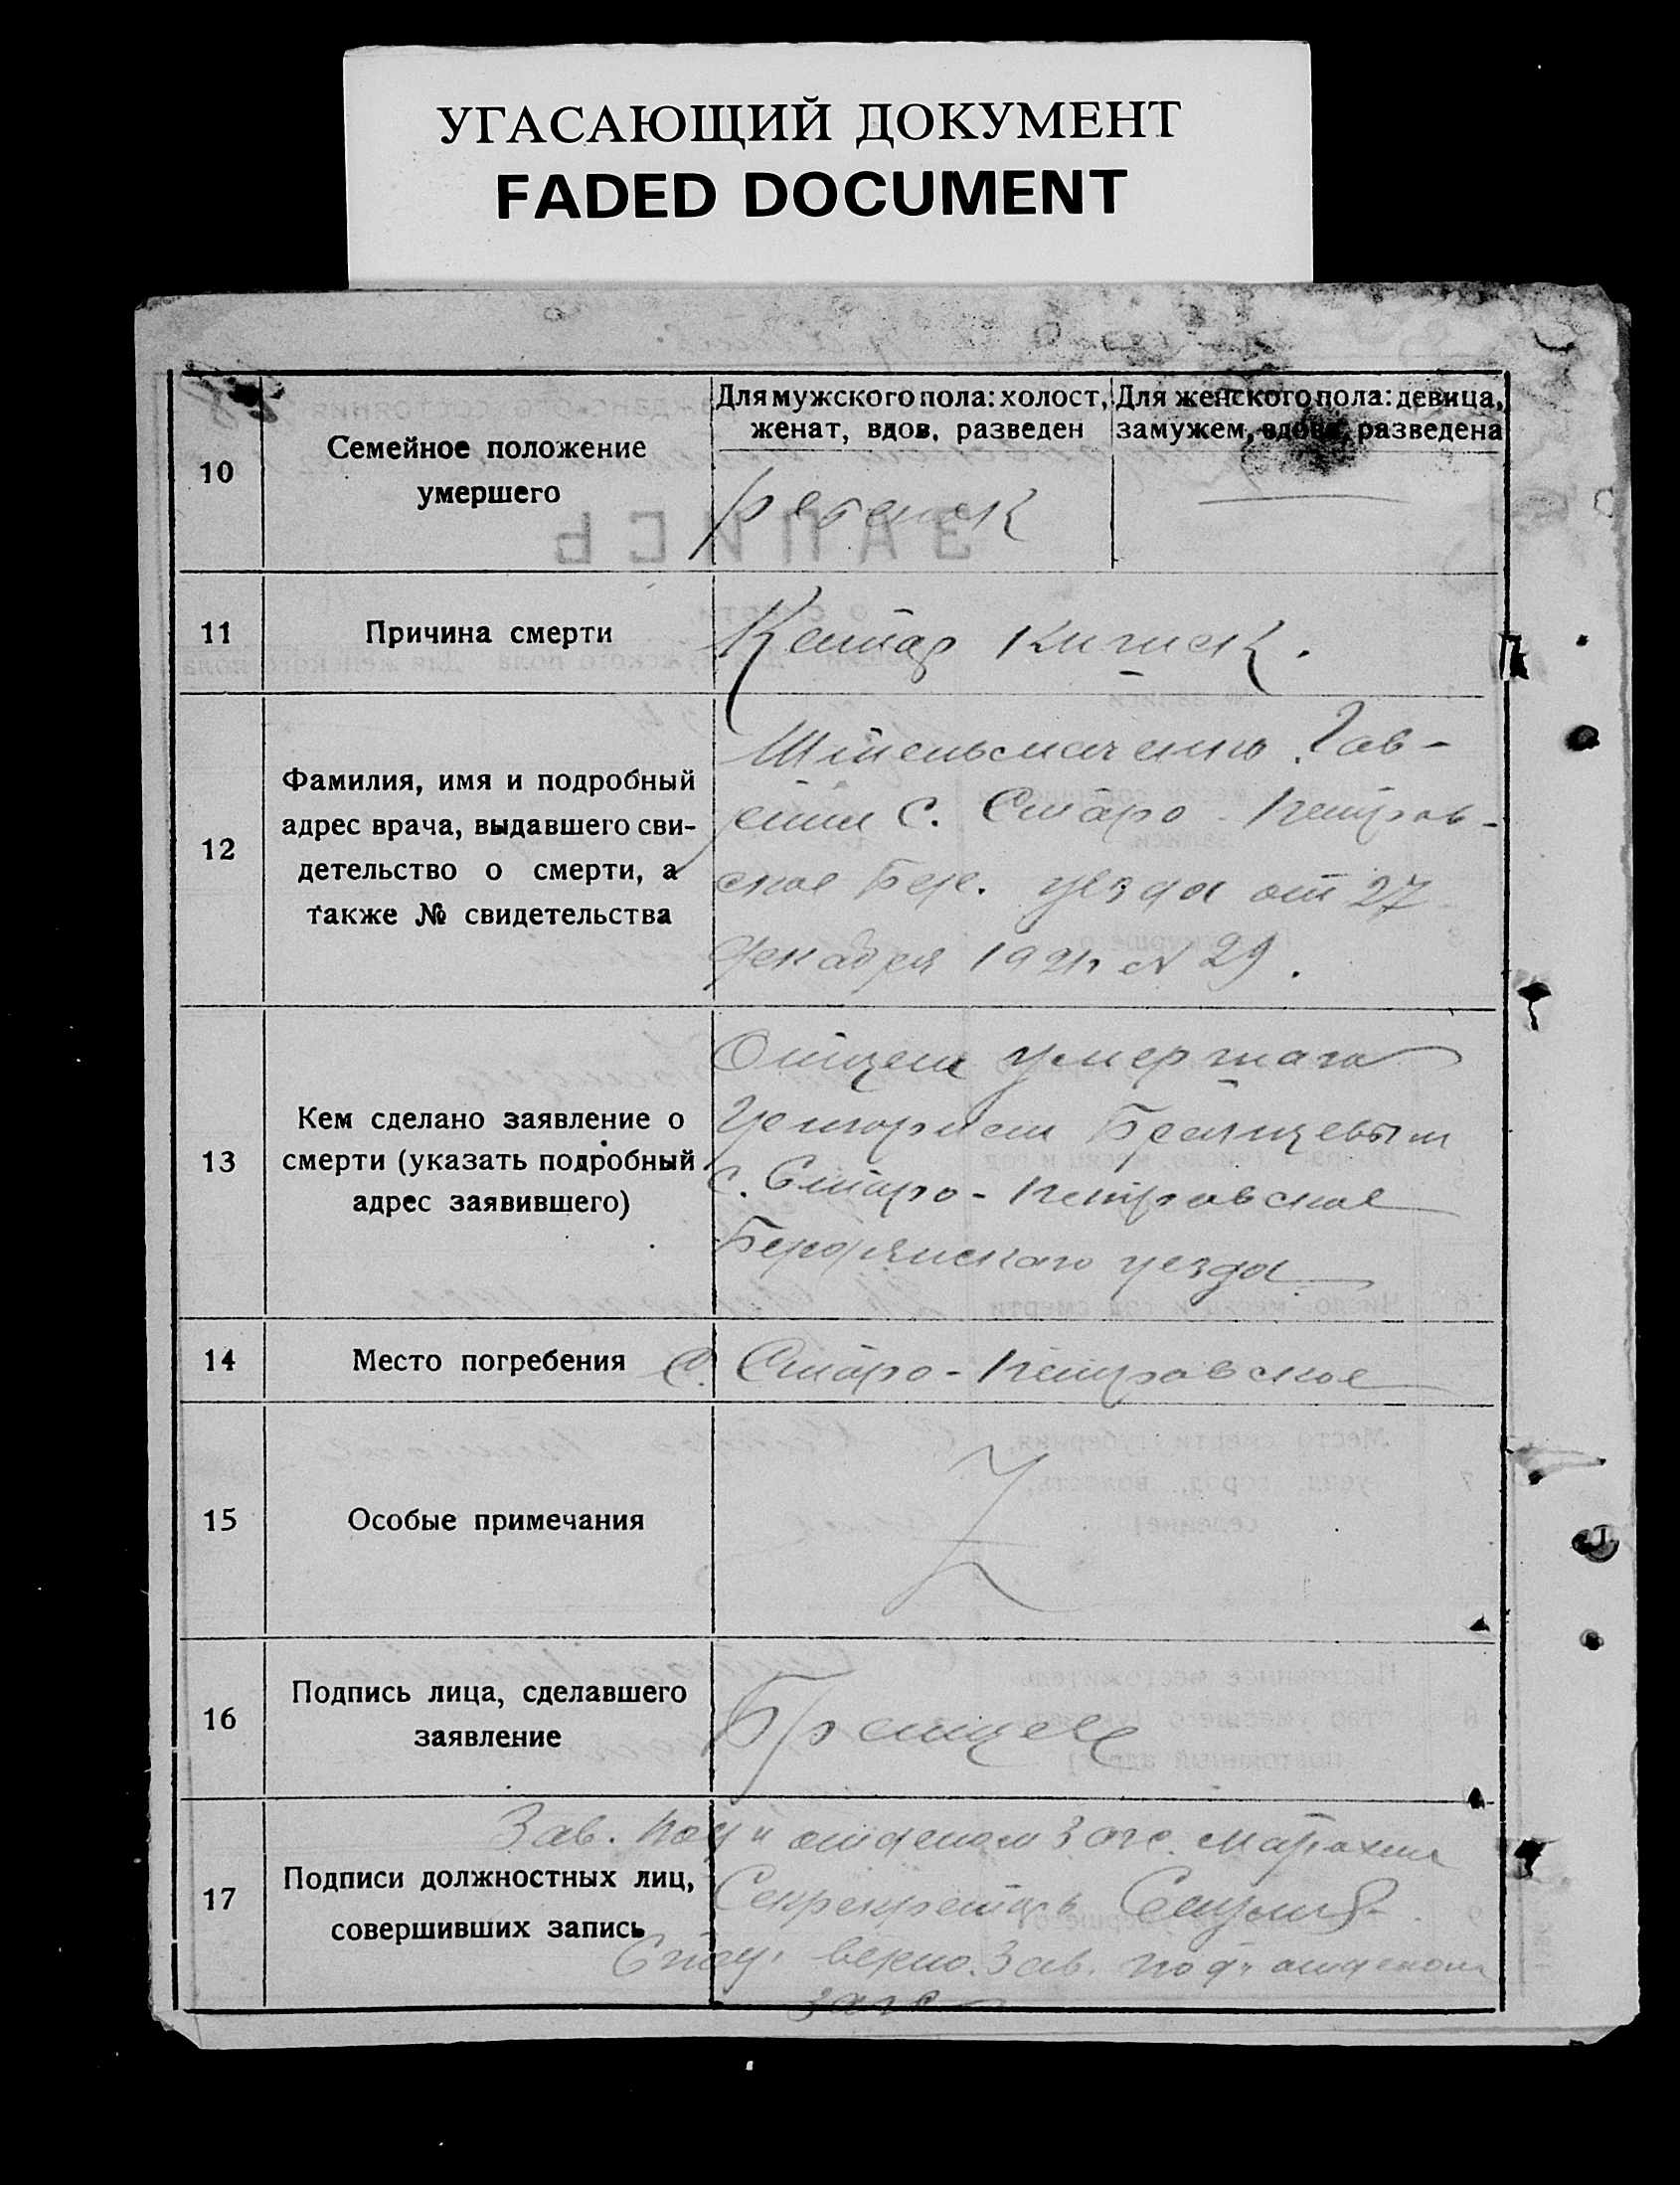 УГАСАЮЩИЙ ДОКУМЕНТ
FADED DOCUMENT
10
Семейное положение
умершего
Для мужского пола: холост,
женат, вдов, разведен
Для женского пола: девица,
замужем, вдова, разведена
ребенок
11
Причина смерти
Катар кишек.
12
Фамилия, имя и подробный
адрес врача, выдавшего сви-
детельство о смерти, а
также № свидетельства
с. Старо-Петров-
ское Бер. уезда от 27
декабря 1921 г. № 29.
13
Кем сделано заявление о
смерти (указать подробный
адрес заявившего)
Отцем умершаго
с. Старо-Петровское
Бердянскаго уезда
14
Место погребения
с. Старо-Петровское
15
Особые примечания
16
Подпись лица, сделавшего
заявление
17
Подписи должностных лиц,
совершивших запись
Зав. под отделом Загс
верно. Зав. под отделом
загс